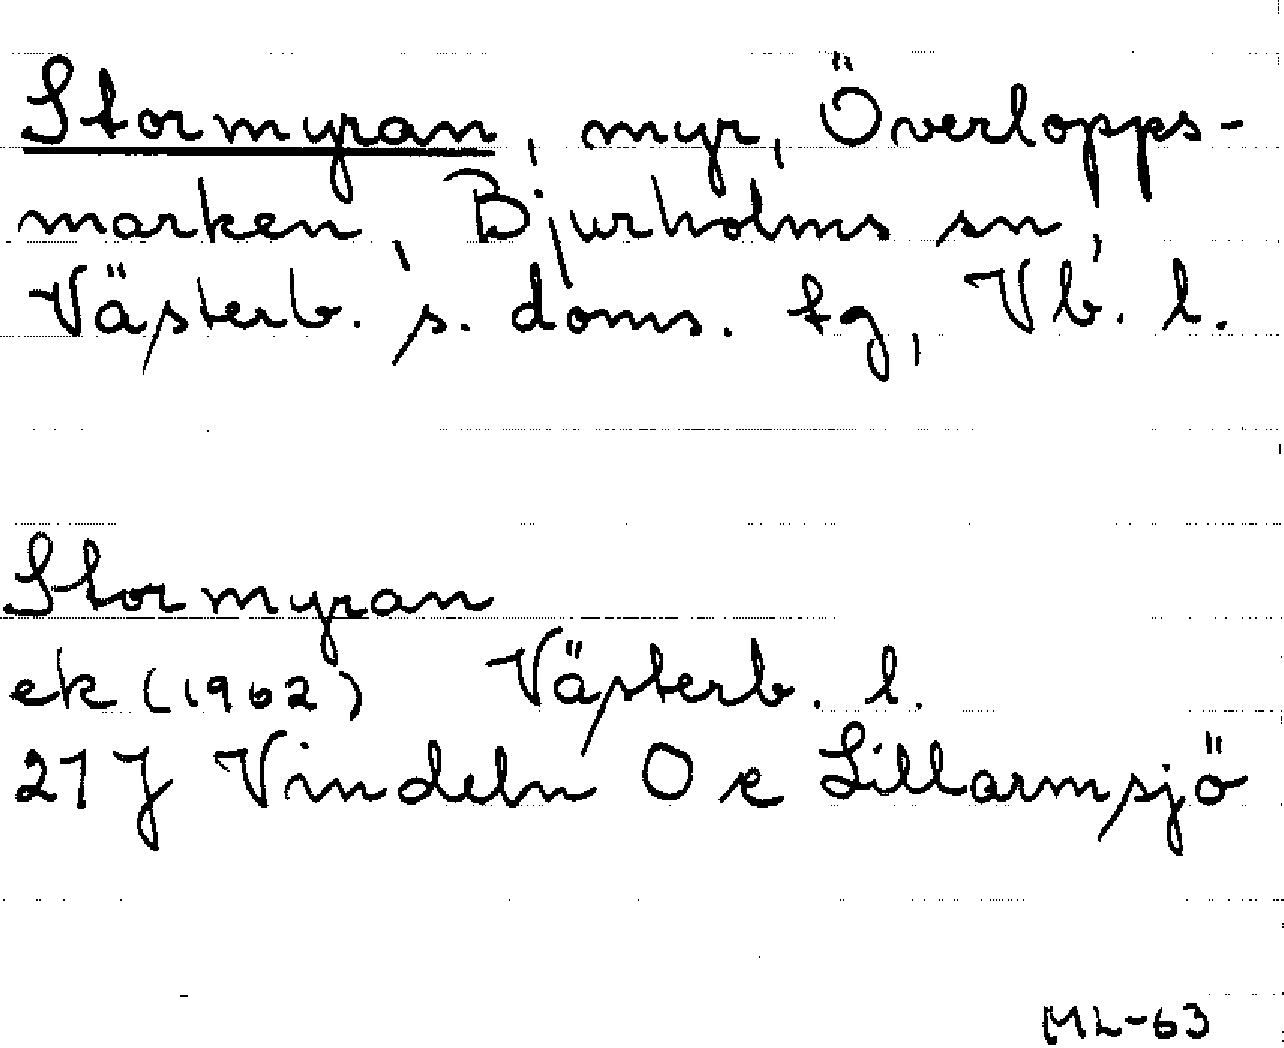 Stormyran, myr, Överlopps-
marken, Bjurholms sn,
Västerb. s. doms. tg, Vb. l.
Stormyran
ek (1962) Västerb. l.
21 J Vindeln O e Lillarmsjö
ML-63